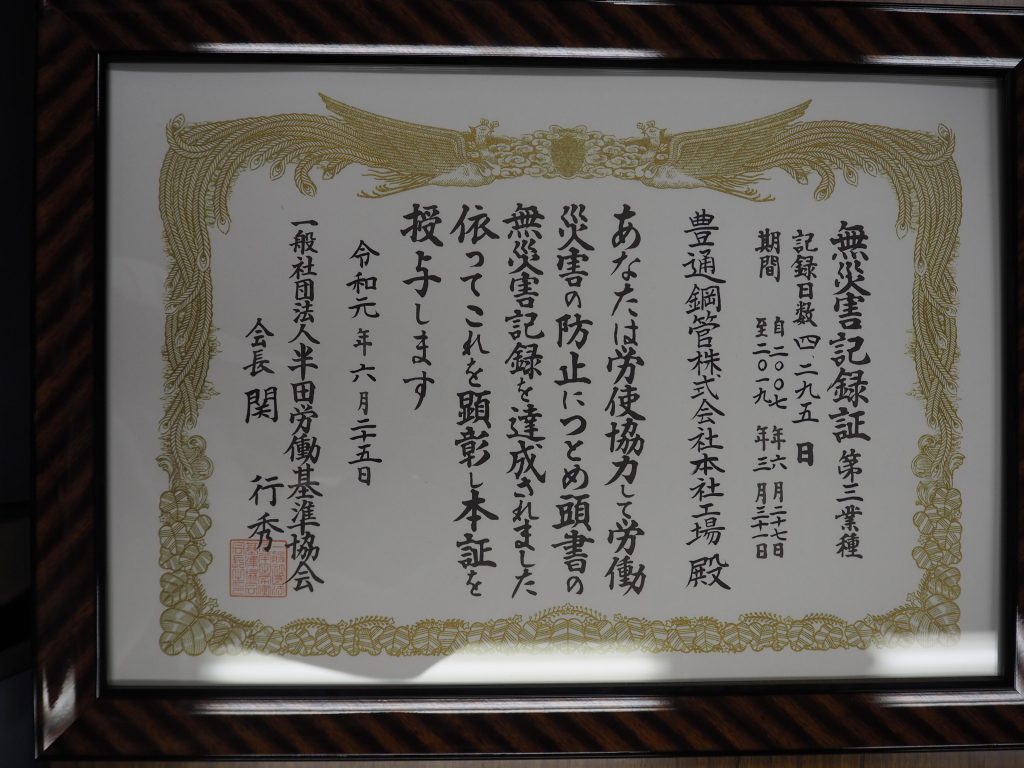 無災害記録証 第三業種
記録日数 四、二九五 日
期間 自 二〇〇七 年 六 月 二十七日
至 二〇一九 年 三 月 三十一日
豊通鋼管株式会社本社工場 殿
あなたは労使協力して労働
災害の防止につとめ頭書の
無災害記録を達成されました
依ってこれを顕彰し本証を
授与します
令和元年六月二十五日
一般社団法人半田労働基準協会
会長 関 行秀